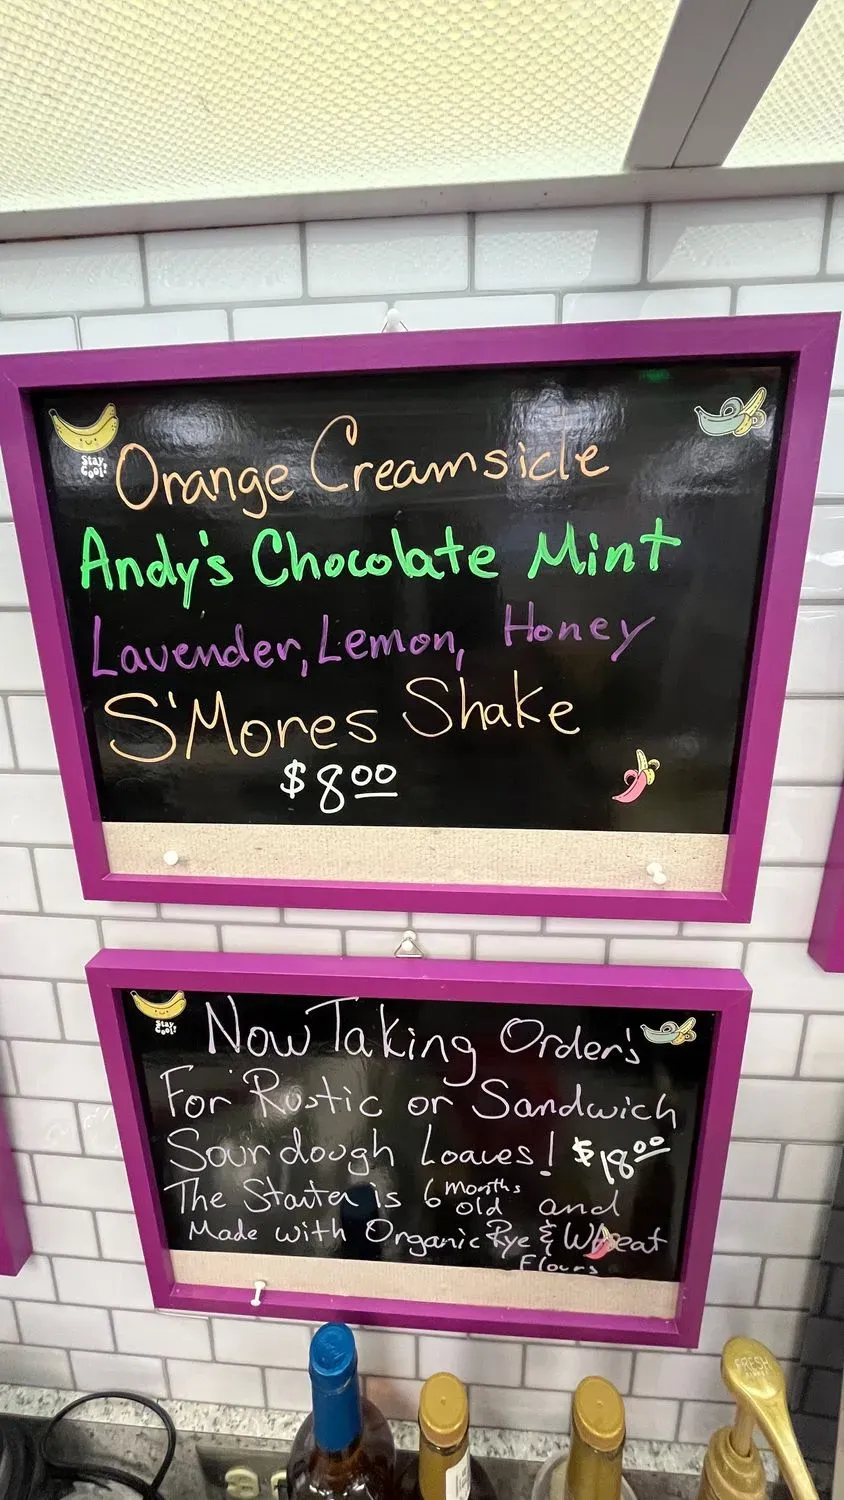 Stay Cool!
Orange Creamsicle
Andy's Chocolate Mint
Lavender, Lemon, Honey
S'Mores Shake
$8.00
Stay Cool!
Now Taking Order's
For Rustic or Sandwich
Sourdough Loaves! $18.00
The Starter is 6 months old and
Made with Organic Rye & Wheat
Flours
FRESH